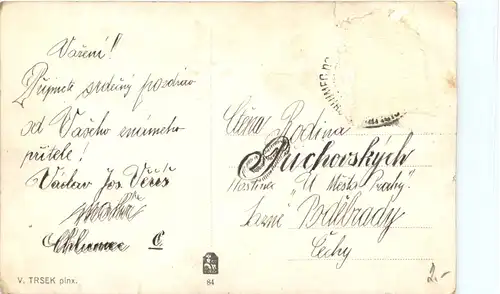 Vážení!
Přijměte srdečný pozdrav
od Vašeho známého
přítele!
Václav Jos. Vereš
Chlumec C
V. TRSEK pinx.
84
Ctěná Rodina
Puchorských
Hostinec "U Města Prahy".
Lázně Poděbrady
Čechy
2.-